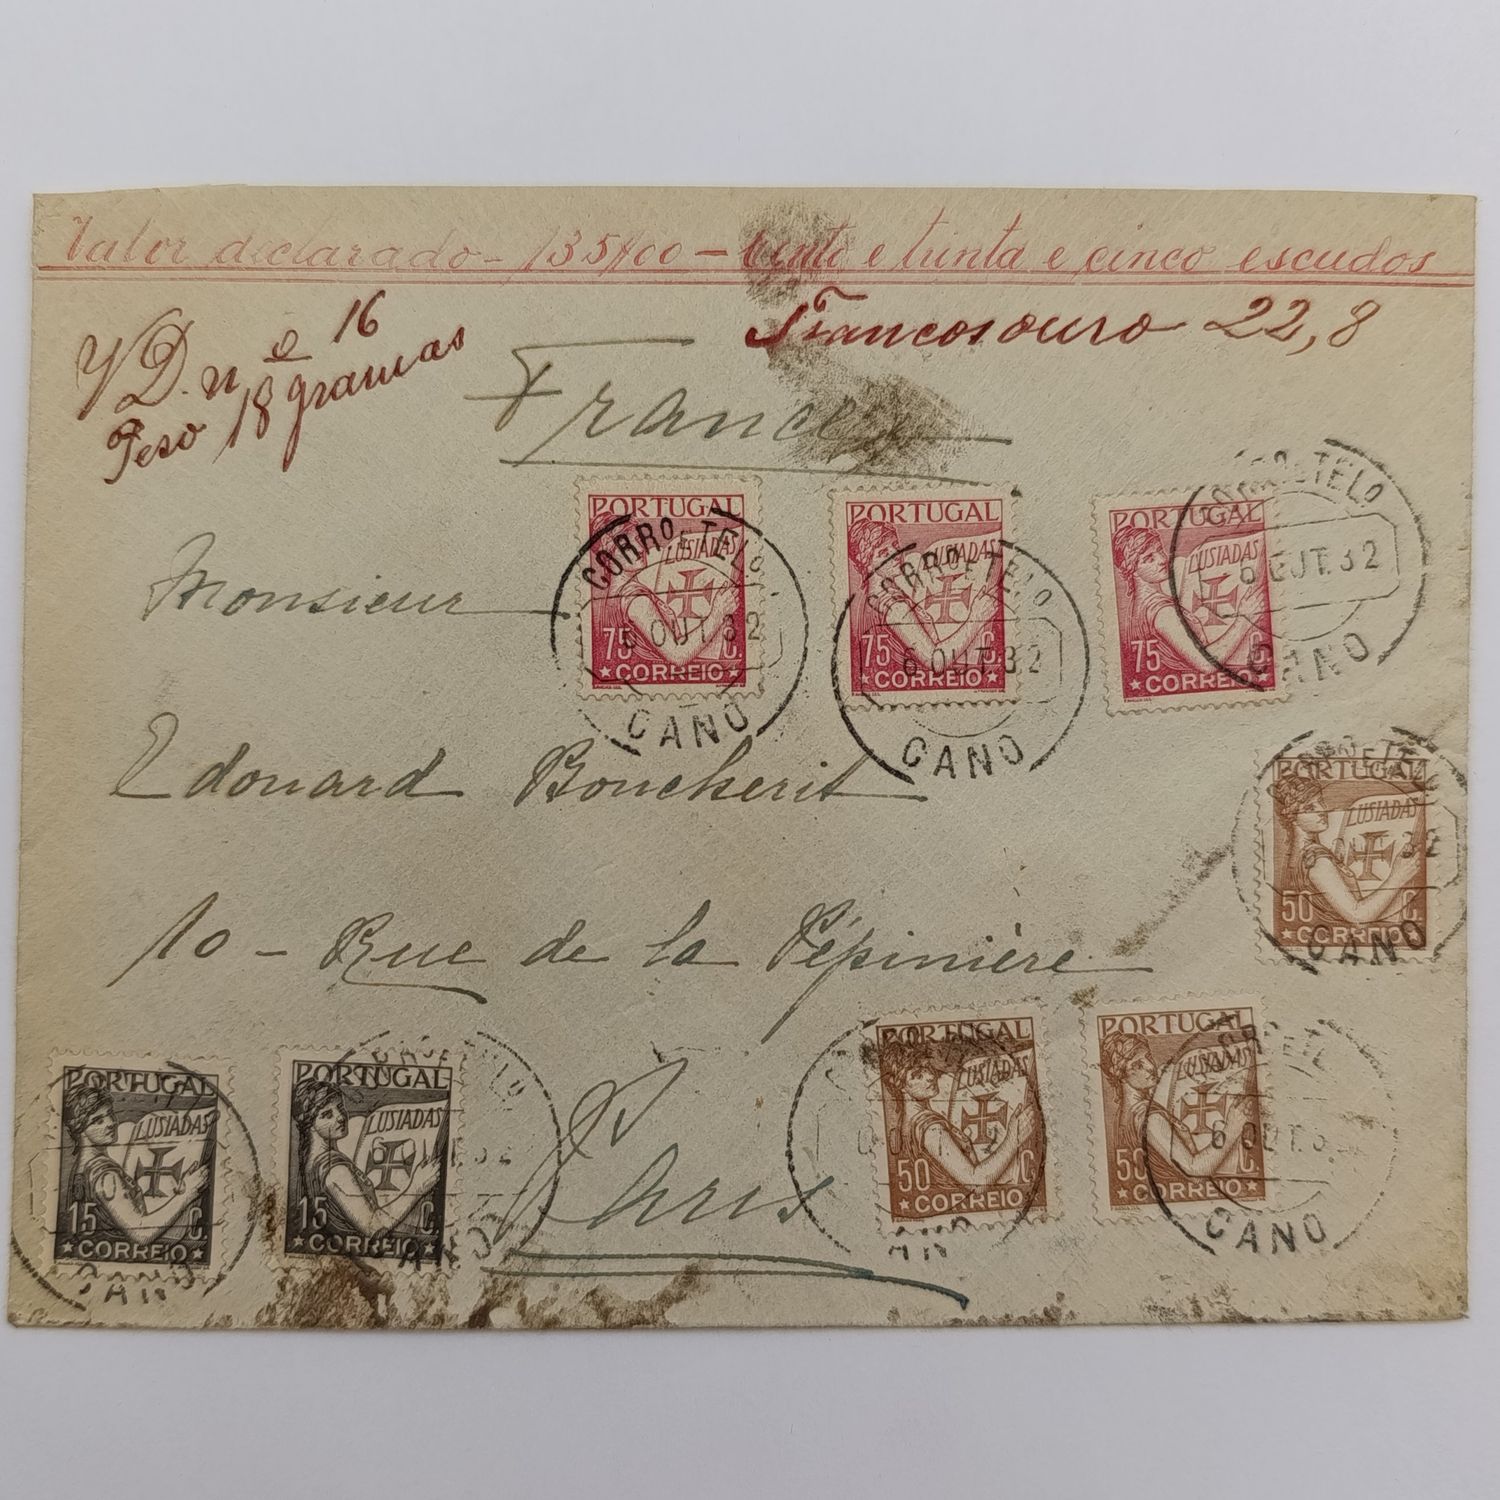 Valor declarado - 135$00 - Cento e trinta e cinco escudos
VD. nº 16
Peso 18 gramas
Francos ouro 22,8
France
PORTUGAL
LUSIADAS
75 C.
CORREIO
CORRO E TELO
6 OUT. 32
CANO
PORTUGAL
LUSIADAS
75 C.
CORREIO
CORRO E TELO
6 OUT. 32
CANO
PORTUGAL
LUSIADAS
75
CORREIO
CORRO E TELO
6 OUT. 32
CANO
Monsieur
Edouard Boucherit
PORTUGAL
LUSIADAS
50 C.
CORREIO
32
CANO
10 - Rue de la Pépinière
PORTUGAL
LUSIADAS
15 C.
CORREIO
CANO
PORTUGAL
LUSIADAS
15 C.
CORREIO
32
CANO
Paris
PORTUGAL
LUSIADAS
50 C.
CORREIO
CANO
PORTUGAL
LUSIADAS
50 C.
CORREIO
6 OUT. 3
CANO